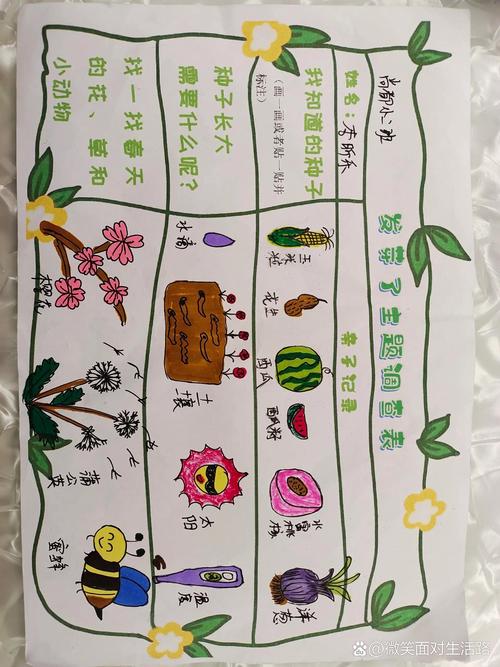 发芽了主题调查表
尚都小二班
姓名：李昕
亲子记录
我知道的种子
（画一画或者贴一贴并
标注）
玉米粒
花生
西瓜
西瓜籽
水蜜桃核
洋葱
种子长大
需要什么呢？
水滴
土壤
太阳
温度
找一找春天
的花、草和
小动物
樱花
蒲公英
蜜蜂
@微笑面对生活路